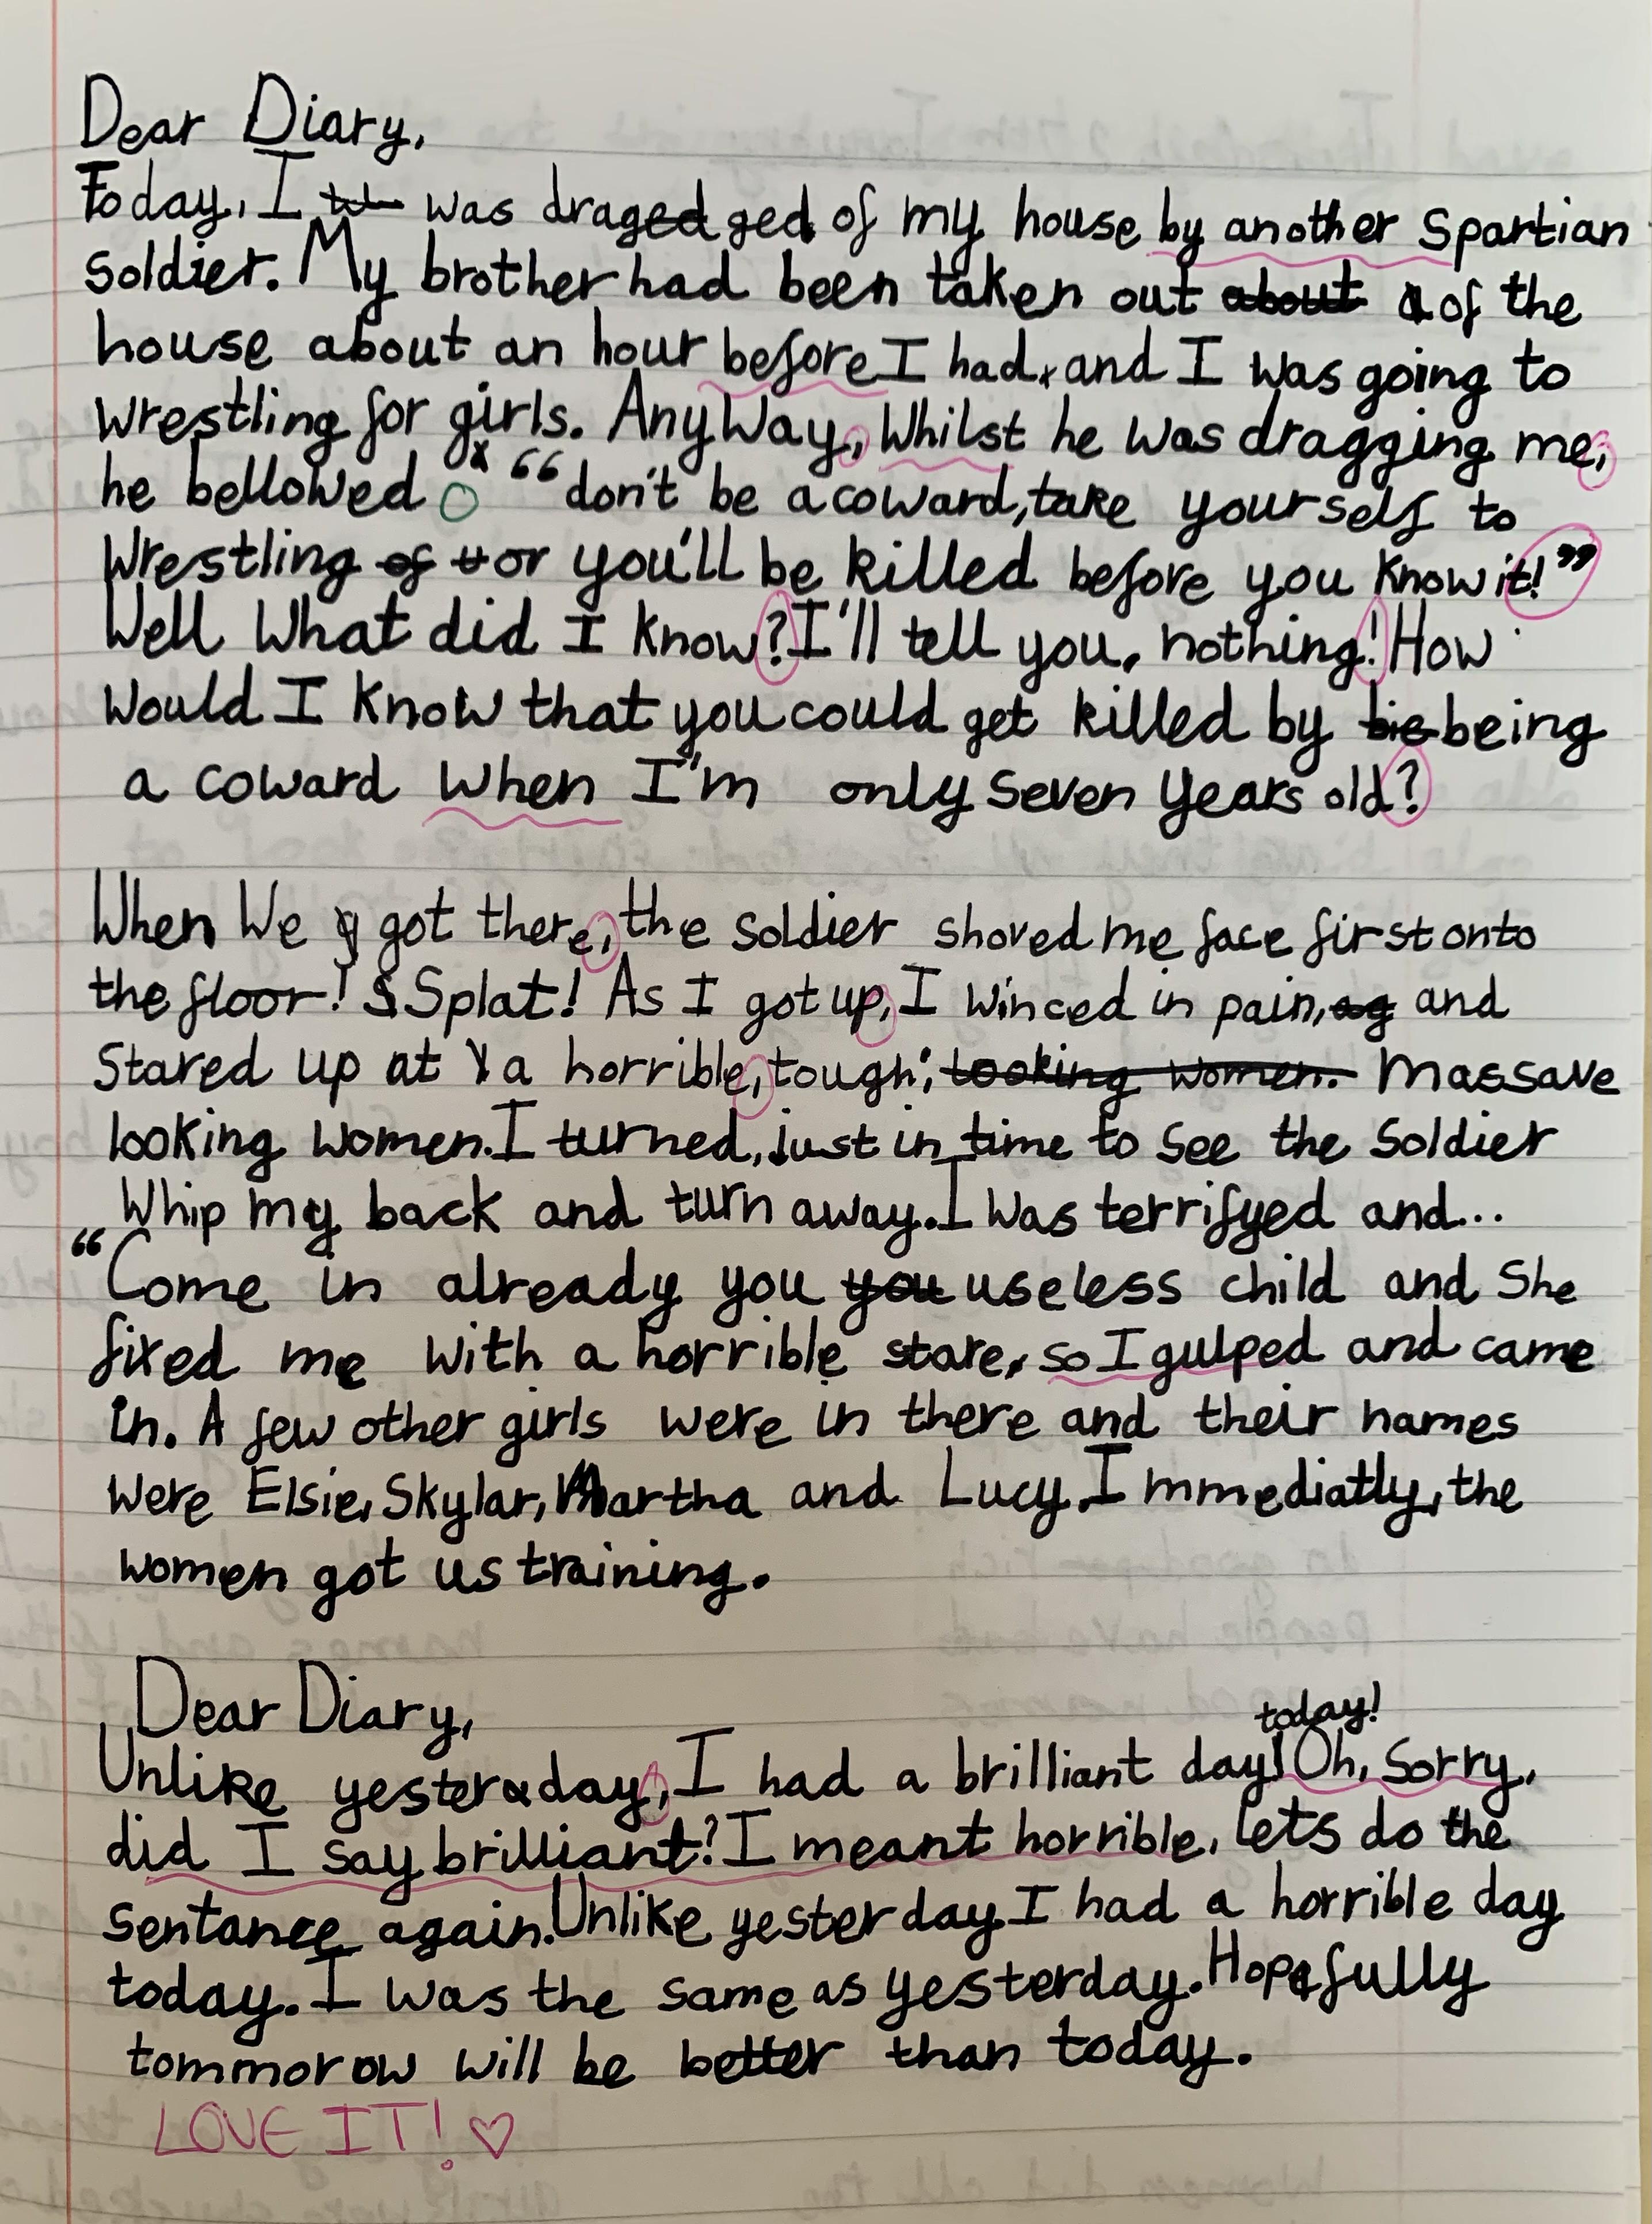 Dear Diary,
Today, I was dragged of my house by another Spartian
soldier. My brother had been taken out of the
house about an hour before I had, and I was going to
wrestling for girls. AnyWay, Whilst he was dragging me,
he bellowed “don't be a coward, take yourself to
Wrestling or you'll be killed before you know it!”
Well What did I know? I'll tell you, nothing! How
would I know that you could get killed by being
a coward when I'm only seven years old?
When We got there, the soldier shoved me face first onto
the floor! Splat! As I got up, I winced in pain, and
Stared up at a horrible, tough, massave
looking women. I turned, just in time to see the soldier
Whip my back and turn away. I was terrifyed and...
“Come in already you useless child and She
fixed me with a horrible stare, so I gulped and came
in. A few other girls were in there and their names
were Elsie, Skylar, Martha and Lucy. Immediatly, the
women got us training.
Dear Diary,
today!
Unlike yesterday, I had a brilliant day! Oh, sorry,
did I say brilliant? I meant horrible, lets do the
sentance again. Unlike yesterday I had a horrible day
today. I was the same as yesterday. Hopefully
tommorow will be better than today.
LOVE IT! ♡